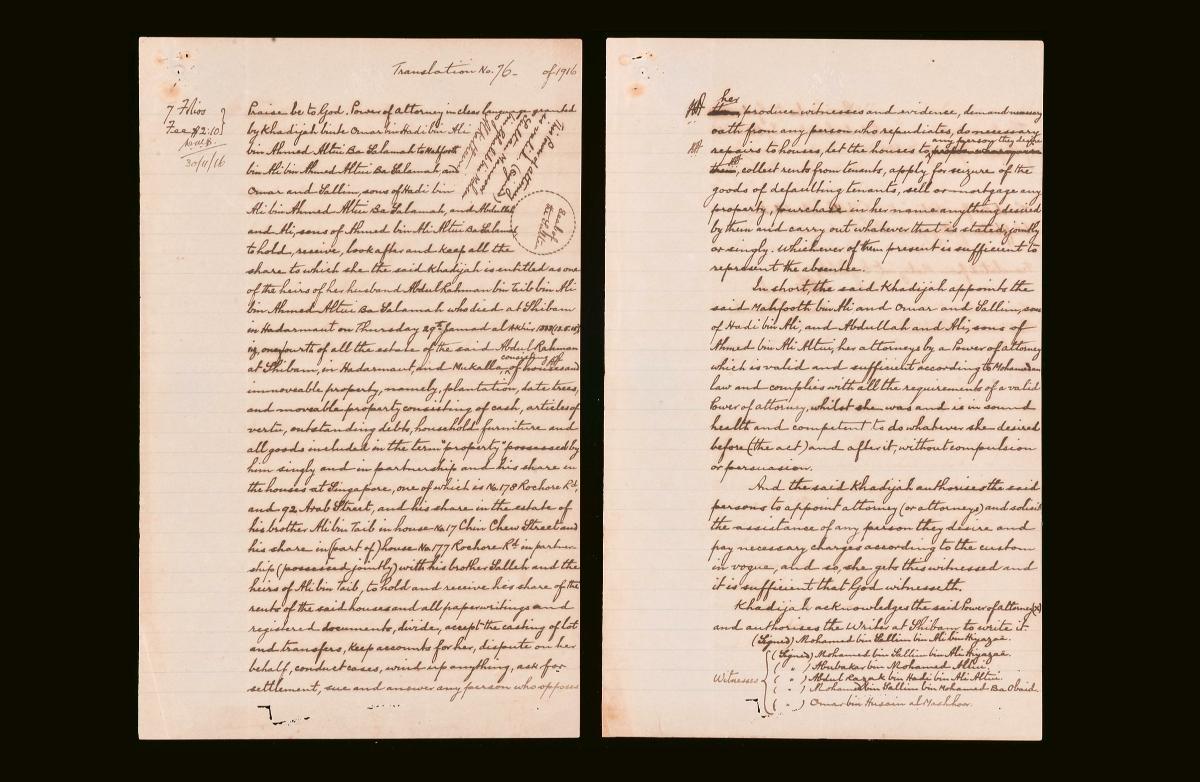 Translation No. 76 - of 1916
7 Folios
Fee $2.10
30/11/16
Praise be to God. Power of attorney in clear language granted
by Khadijah binte Omar bin Hadi bin Ali
bin Ahmed Altui Ba Salamah to Mahfooth
bin Ali bin Ahmed Altui Ba Salamah, and
Omar and Sallim, sons of Hadi bin
Ali bin Ahmed Altui Ba Salamah, and Abdullah
and Ali, sons of Ahmed bin Ali Altui Ba Salamah
to hold, receive, look after and keep all the
share to which she the said Khadijah is entitled as one
of the heirs of her husband Abdul Rahman bin Taib bin Ali
bin Ahmed Altui Ba Salamah who died at Shibam
in Hadarmaut on Thursday 29th Jamad al Akhir
viz, one fourth of all the estate of the said Abdul Rahman
at Shibam, in Hadarmaut, and Mukalla, consisting of houses and
immoveable property, namely, plantation, date trees,
and moveable property consisting of cash, articles of
vertu, outstanding debts, household furniture and
all goods included in the term "property" possessed by
him singly and in partnership and his share in
the houses at Singapore, one of which is No. 178 Rochore Rd.,
and 92 Arab Street, and his share in the estate of
his brother Ali bin Taib in house No. 17 Chin Chew Street and
his share in (part of) house No. 177 Rochore Rd. in partner-
ship (possessed jointly) with his brother Salleh and the
heirs of Ali bin Taib, to hold and receive his share of the
rents of the said houses and all paper writings and
registered documents, divide, accept the casting of lot
and transfers, keep accounts for her, dispute on her
behalf, conduct cases, wind up anything, ask for
settlement, sue and answer any person who opposes
her, produce witnesses and evidence, demand necessary
oath from any person who repudiates, do necessary
repairs to houses, let the houses to any person they desire
collect rents from tenants, apply for seizure of the
goods of defaulting tenants, sell or mortgage any
property, purchase in her name anything desired
by them and carry out whatever that is stated, jointly
or singly. Whichever of them present is sufficient to
represent the absentee.
In short, the said Khadijah appoints the
said Mahfooth bin Ali and Omar and Sallim, sons
of Hadi bin Ali, and Abdullah and Ali, sons of
Ahmed bin Ali Altui, her attorneys by a Power of attorney
which is valid and sufficient according to Mohamedan
law and complies with all the requirements of a valid
Power of attorney, whilst she was and is in sound
health and competent to do whatever she desired
before (the act) and after it, without compulsion
or persuasion.
And the said Khadijah authorises the said
persons to appoint attorney (or attorneys) and solicit
the assistance of any person they desire and
pay necessary charges according to the custom
in vogue, and so, she gets this witnessed and
it is sufficient that God witnesseth.
Khadijah acknowledges the said Power of attorney
and authorises the Writer at Shibam to write it.
(Signed) Mohamed bin Sallim bin Ali bin Hiyazae.
Witnesses
(Signed) Mohamed bin Sallim bin Ali Hiyazae.
( " ) Abubakar bin Mohamed Altui,
( " ) Abdul Razak bin Hadi bin Ali Altui.
( " ) Mohamed bin Sallim bin Mohamed Ba Obaid.
( " ) Omar bin Husain al Mashhoor.